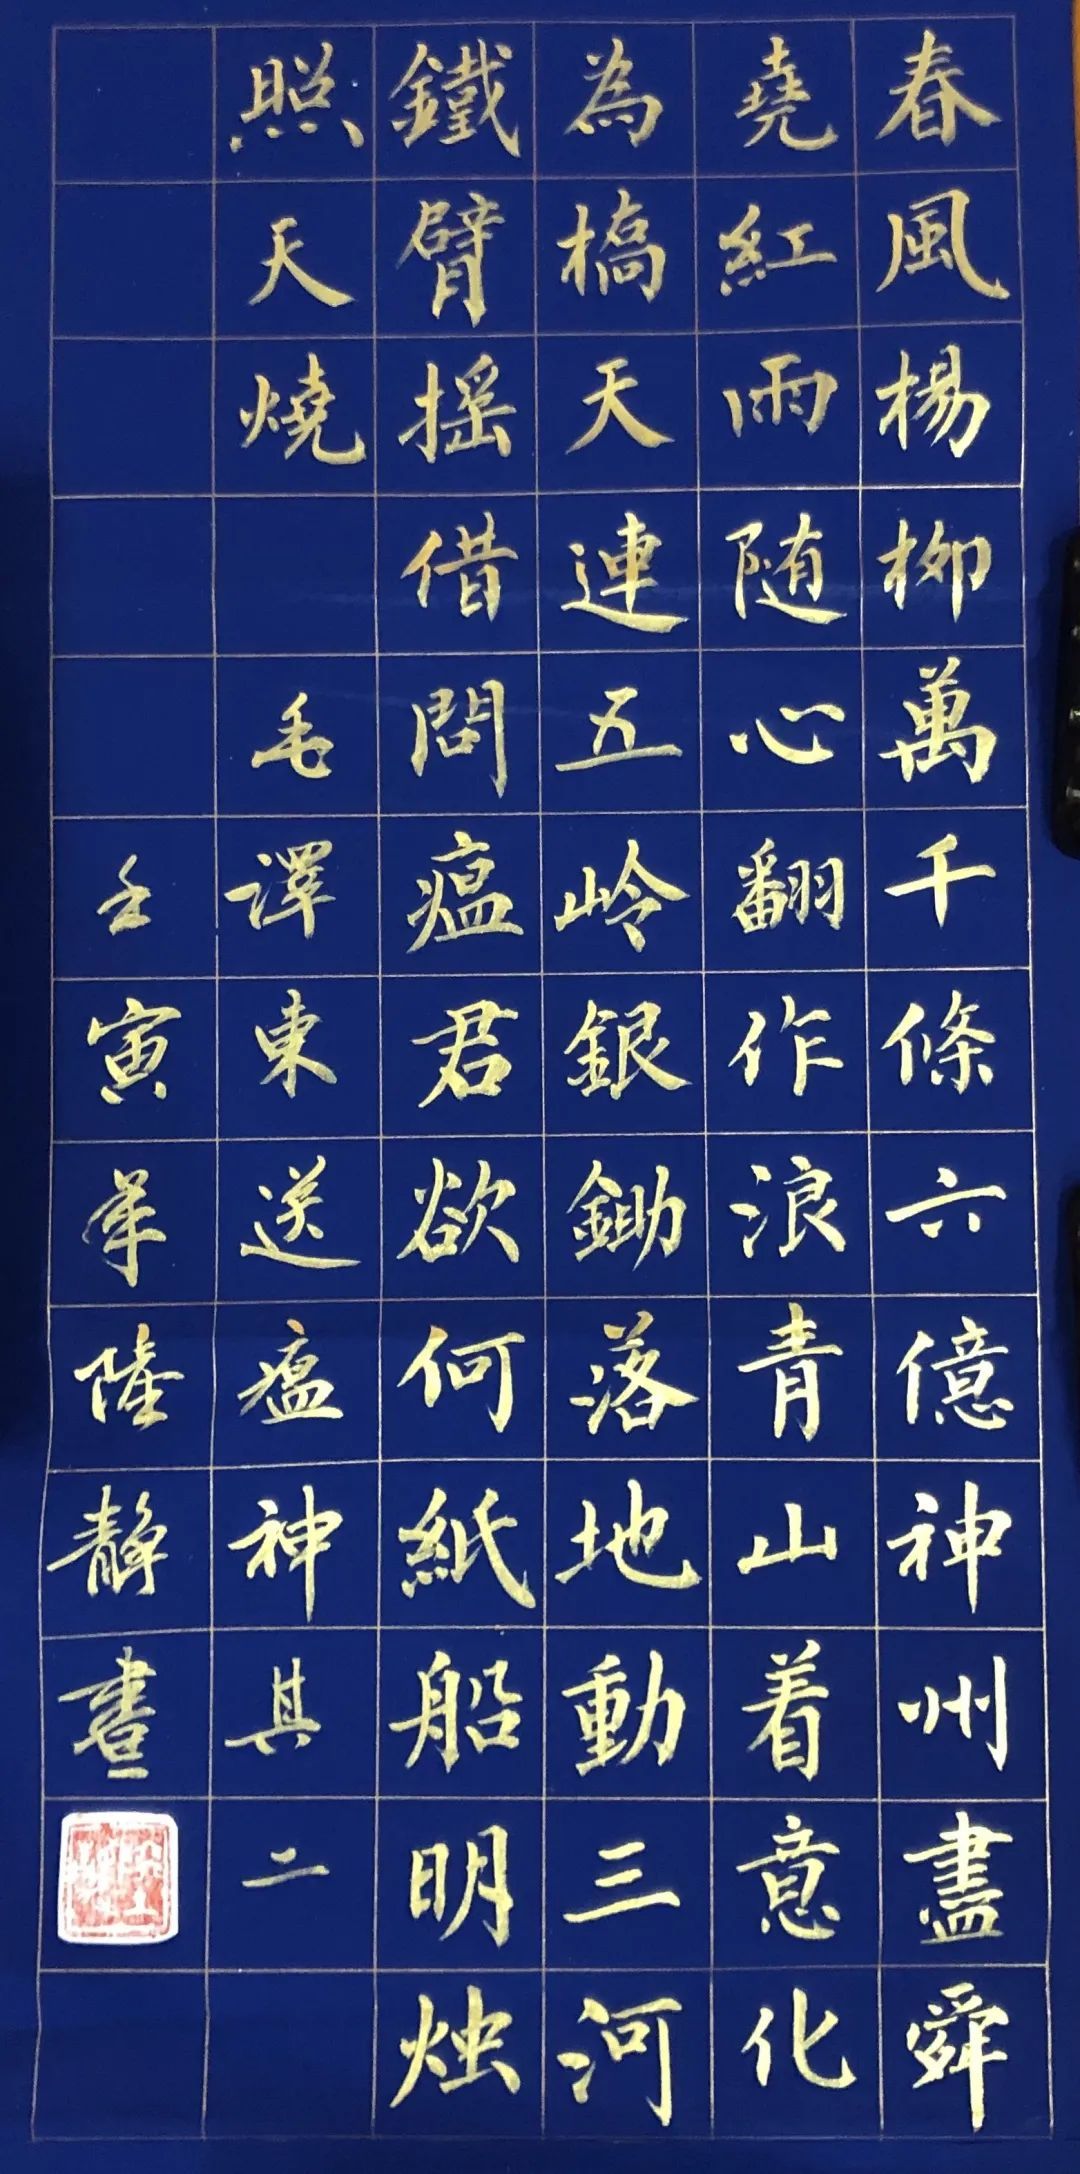 春風楊柳萬千條六億神州盡舜
堯紅雨随心翻作浪青山着意化
為橋天連五岭銀鋤落地動三河
鐵臂摇借問瘟君欲何紙船明烛
照天燒毛澤東送瘟神其二
壬寅年隆靜書